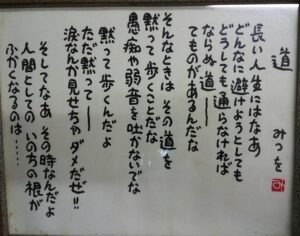 道
みつを
長い人生にはなあ
どんなに避けようとしても
どうしても通らなければ
ならぬ道――
てものがあるんだな
そんなときはその道を
黙って歩くことだな
愚痴や弱音を吐かないでな
黙って歩くんだよ
ただ黙って――
涙なんか見せちゃダメだぜ!!
そしてなあ その時なんだよ
人間としての いのちの根が
ふかくなるのは……